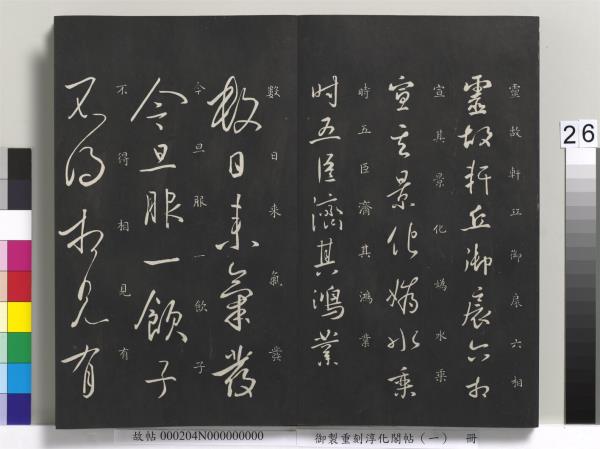 靈故軒丘御扆六相
靈故軒丘御扆六相
宣其景化嬀水乘
宣其景化嬀水乘
時五臣濟其鴻業
時五臣濟其鴻業
數日來氣發
數日來氣發
今旦服一飲子
今旦服一飲子
不得相見有
不得相見有
26
故帖 000204N000000000
御製重刻淳化閣帖(一) 冊